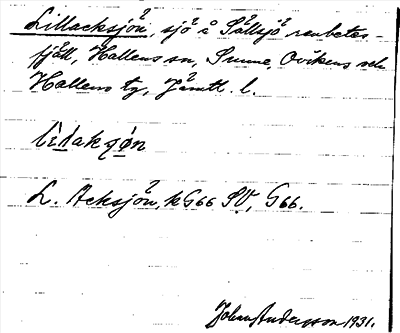 Lillacksjön, sjö å Sällsjö renbetes-
fjäll, Hallens sn, Sunne, Ovikens och
Hallens tg, Jämtl. l.
L. Acksjön, k G66 SV, G66.
John Andersson 1931.